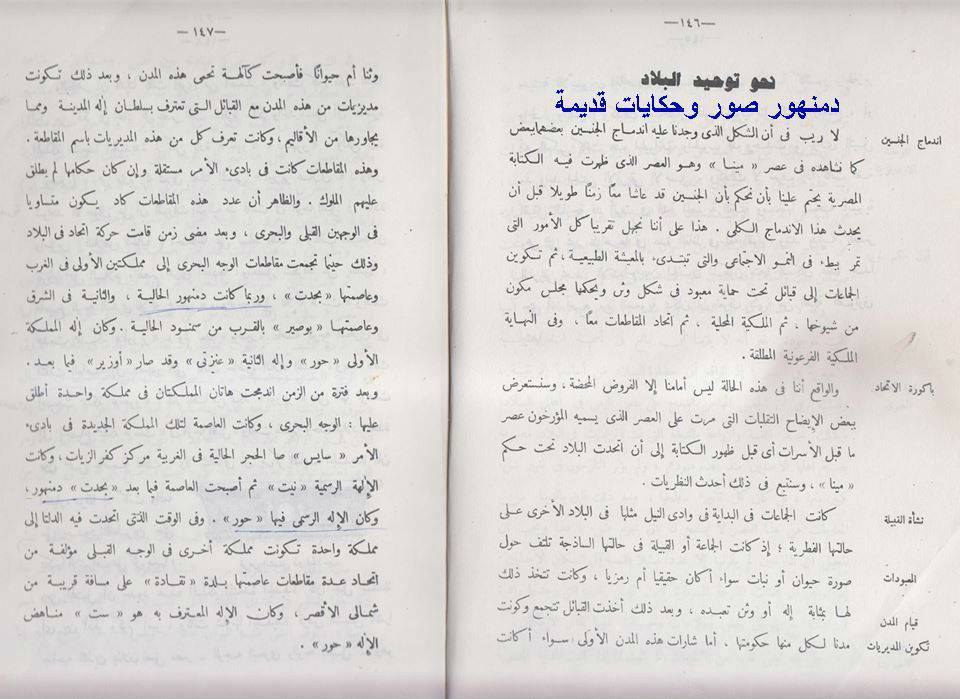 —١٤٦—
نحو توحيد البلاد
دمنهور صور وحكايات قديمة
اندماج الجنسين
لا ريب فى أن الشكل الذى وجدنا عليه اندماج الجنسين بعضهما ببعض
كما نشاهده فى عصر « مينا » وهو العصر الذى ظهرت فيه الكتابة
المصرية يحتم علينا بأن نحكم بأن الجنسين قد عاشا معًا زمنًا طويلا قبل أن
يحدث هذا الاندماج الكلى . هذا على أننا نجهل تقريبا كل الأمور التى
تمر ببطء فى النمو الاجتماعى والتى تبتدىء بالمعيشة الطبيعية ، ثم تكوين
الجماعات إلى قبائل تحت حماية معبود فى شكل وثن ويحكمها مجلس مكون
من شيوخها ، ثم الملكية المحلية ، ثم اتحاد المقاطعات معًا ، وفى النهاية
الملكية الفرعونية المطلقة .
باكورة الاتحاد
والواقع أننا فى هذه الحالة ليس أمامنا إلا الفروض المحضة ، وسنستعرض
ببعض الإيضاح التقلبات التى مرت على العصر الذى يسميه المؤرخون عصر
ما قبل الأسرات أى قبل ظهور الكتابة إلى أن اتحدت البلاد تحت حكم
« مينا » ، وسنتبع فى ذلك أحدث النظريات .
نشأة القبيلة
كانت الجماعات فى البداية فى وادى النيل مثلها فى البلاد الأخرى على
حالتها الفطرية ؛ إذ كانت الجماعة أو القبيلة فى حالتها الساذجة تلتف حول
العبودات
صورة حيوان أو نبات سواء أكان حقيقيا أم رمزيا ، وكانت تتخذ ذلك
قيام المدن
لها بمثابة إله أو وثن تعبده ، وبعد ذلك أخذت القبائل تتجمع وكونت
تكوين المديريات
مدنا لكل منها حكومتها . أما شارات هذه المدن الأولى سواء أكانت
—١٤٧—
وثنا أم حيوانًا فأصبحت كآلهة تحمى هذه المدن ، وبعد ذلك تكونت
مديريات من هذه المدن مع القبائل التى تعترف بسلطان إله المدينة ومما
يجاورها من الأقاليم ، وكانت تعرف كل من هذه المديريات باسم المقاطعة .
وهذه المقاطعات كانت فى بادىء الأمر مستقلة وإن كان حكامها لم يطلق
عليهم الملوك . والظاهر أن عدد هذه المقاطعات كاد يكون متساويا
فى الوجهين القبلى والبحرى ، وبعد مضى زمن قامت حركة اتحاد فى البلاد
وذلك حينما تجمعت مقاطعات الوجه البحرى إلى مملكتين الأولى فى الغرب
وعاصمتها « بحدت » ، وربما كانت دمنهور الحالية ، والثانية فى الشرق
وعاصمتها « بوصير » بالقرب من سمنود الحالية . وكان إله المملكة
الأولى « حور » وإله الثانية « عنزتى » وقد صار « أوزير » فيما بعد .
وبعد فترة من الزمن اندمجت هاتان المملكتان فى مملكة واحدة أطلق
عليها : الوجه البحرى ، وكانت العاصمة لتلك المملكة الجديدة فى بادىء
الأمر « سايس » صا الحجر الحالية فى الغربية مركز كفر الزيات ، وكانت
الإلهة الرسمية « نيت » ثم أصبحت العاصمة فيما بعد « بحدت » دمنهور ،
وكان الإله الرسمى فيها « حور » . وفى الوقت الذى اتحدت فيه الدلتا إلى
مملكة واحدة تكونت مملكة أخرى فى الوجه القبلى مؤلفة من
اتحاد عدة مقاطعات عاصمتها بلدة « نقادة » على مسافة قريبة من
شمالى الأقصر ، وكان الإله المعترف به هو « ست » مناهض
الإله « حور » .